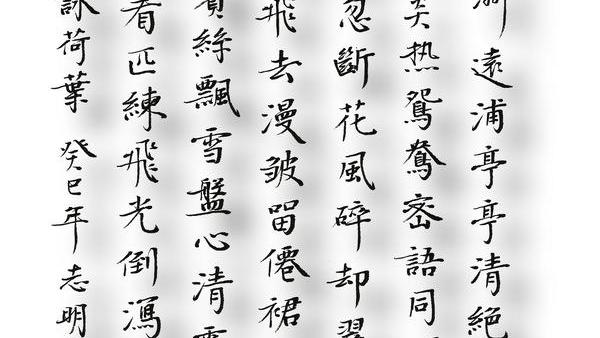 遠浦亭亭清絕
热鴛鴦宻語同
忽斷花風碎却翠
飛去漫皺畱僊裙
絲飄雪盤心清
看匹練飛光倒瀉
詠荷葉 癸巳年志明